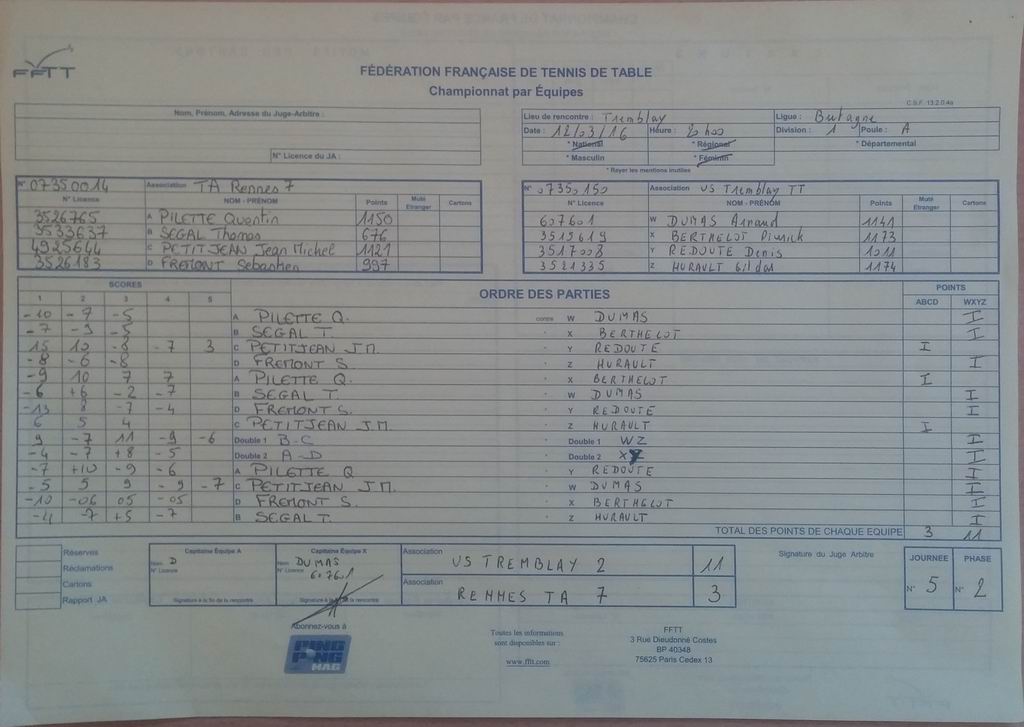 FFTT
FÉDÉRATION FRANÇAISE DE TENNIS DE TABLE
Championnat par Équipes
C.S.F. 13.2.0.4a
Nom, Prénom, Adresse du Juge-Arbitre :
N° Licence du JA :
Lieu de rencontre : Tremblay Ligue : Bretagne
Date : 12/03/16 Heure : 20h00 Division : 1 Poule : A
* National * Régional * Départemental
* Masculin * Féminin
* Rayer les mentions inutiles
N° 07350014 Association TA Rennes 7
N° Licence NOM - PRÉNOM Points Muté Etranger Cartons
3526765 A PILETTE Quentin 1150
3533637 B SEGAL Thomas 676
4925644 C PETITJEAN Jean Michel 1121
3526183 D FREMONT Sebastien 997
N° 07350150 Association US Tremblay TT
N° Licence NOM - PRÉNOM Points Muté Etranger Cartons
607601 W DUMAS Arnaud 1141
3515619 X BERTHELOT Pierrick 1173
3517008 Y REDOUTE Denis 1011
3521335 Z HURAULT Gildas 1174
SCORES ORDRE DES PARTIES POINTS
1 2 3 4 5 ABCD WXYZ
-10 -7 -5 A PILETTE Q. contre W DUMAS I
-7 -9 -5 B SEGAL T. X BERTHELOT I
15 10 -8 -7 3 C PETITJEAN J.M. Y REDOUTE I
-8 -6 -8 D FREMONT S. Z HURAULT I
-9 10 7 7 A PILETTE Q. X BERTHELOT I
-6 +6 -2 -7 B SEGAL T. W DUMAS I
-13 8 -7 -4 D FREMONT S. Y REDOUTE I
6 5 4 C PETITJEAN J.M. Z HURAULT I
9 -7 11 -9 -6 Double 1 B-C Double 1 WZ I
-4 -7 +8 -5 Double 2 A-D Double 2 XY I
-7 +10 -9 -6 A PILETTE Q. Y REDOUTE I
-5 5 9 -9 -7 C PETITJEAN J.M. W DUMAS I
-10 -06 05 -05 D FREMONT S. X BERTHELOT I
-4 -7 +5 -7 B SEGAL T. Z HURAULT I
TOTAL DES POINTS DE CHAQUE EQUIPE 3 11
Réserves
Réclamations
Cartons
Rapport JA
Capitaine Équipe A
Nom D
N° Licence
Signature à la fin de la rencontre
Capitaine Équipe X
Nom DUMAS
N° Licence 607601
Signature à la fin de la rencontre
Association US TREMBLAY 2 11
Association RENNES TA 7 3
Signature du Juge Arbitre
JOURNEE PHASE
N° 5 N° 2
Abonnez-vous à
PING PONG MAG
Toutes les informations
sont disponibles sur :
www.fftt.com
FFTT
3 Rue Dieudonné Costes
BP 40348
75625 Paris Cedex 13